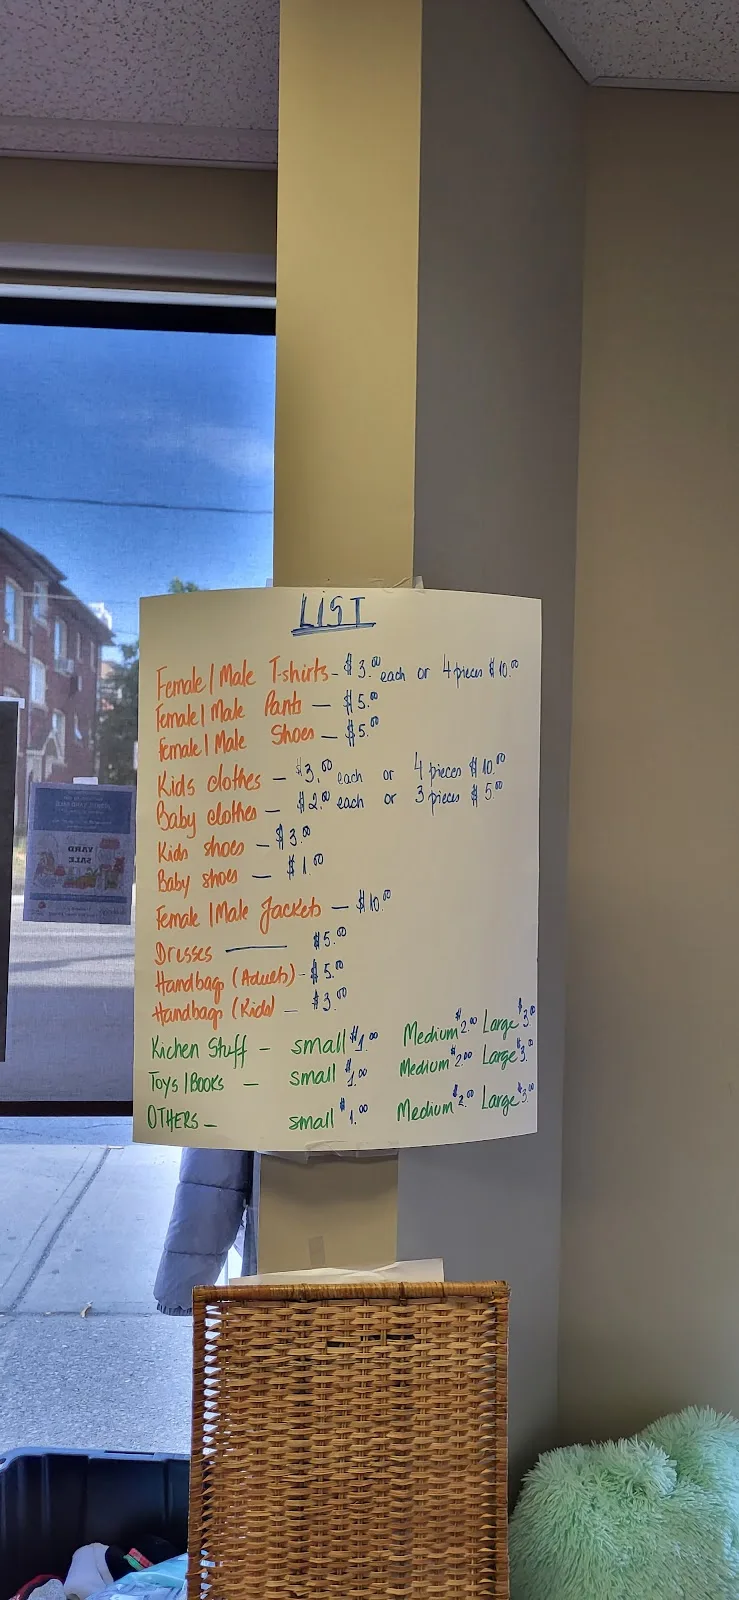 LIST
Female/Male T-shirts - $3.00 each or 4 pieces $10.00
Female/Male Pants — $5.00
Female/Male Shoes — $5.00
Kids clothes — $3.00 each or 4 pieces $10.00
Baby clothes — $2.00 each or 3 pieces $5.00
Kids shoes — $3.00
Baby shoes — $1.00
Female/Male Jackets — $10.00
Dresses — $5.00
Handbag (Adults) - $5.00
Handbag (Kids) — $3.00
Kichen Stuff — small $1.00 Medium $2.00 Large $3.00
Toys/Books — small $1.00 Medium $2.00 Large $3.00
OTHERS — small $1.00 Medium $2.00 Large $3.00
YARD
SALE